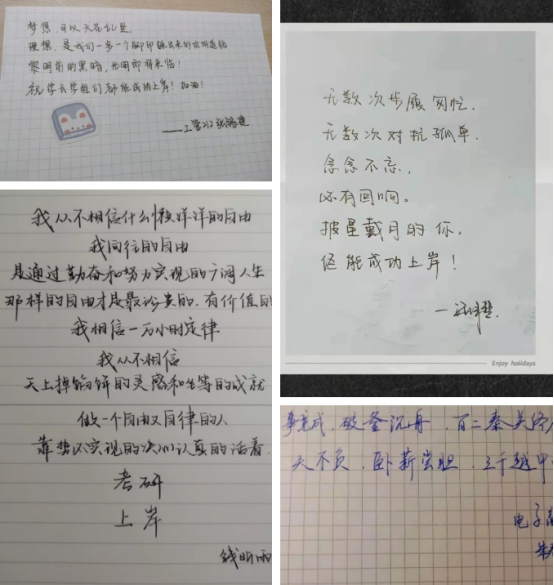 梦想，可以天花乱坠
理想，是我们一步一个脚印踩出来的坎坷道路
黎明前的黑暗，光明即将来临！
祝学长学姐们都能成功上岸！加油！
无数次步履匆忙，
无数次对抗孤单，
念念不忘，
必有回响。
披星戴月的你，
终能成功上岸！
Enjoy holidays
我从不相信什么懒洋洋的自由
我向往的自由
是通过勤奋和努力实现的广阔人生
那样的自由才是最珍贵的，有价值的
我相信一万小时定律
我从不相信
天上掉馅饼的灵感和坐等的成就
做一个自由又自律的人
靠势必实现的决心认真的活着
考研
上岸
钱昕雨
事竟成，破釜沉舟，百二秦关终
天不负，卧薪尝胆，三千越甲
电子